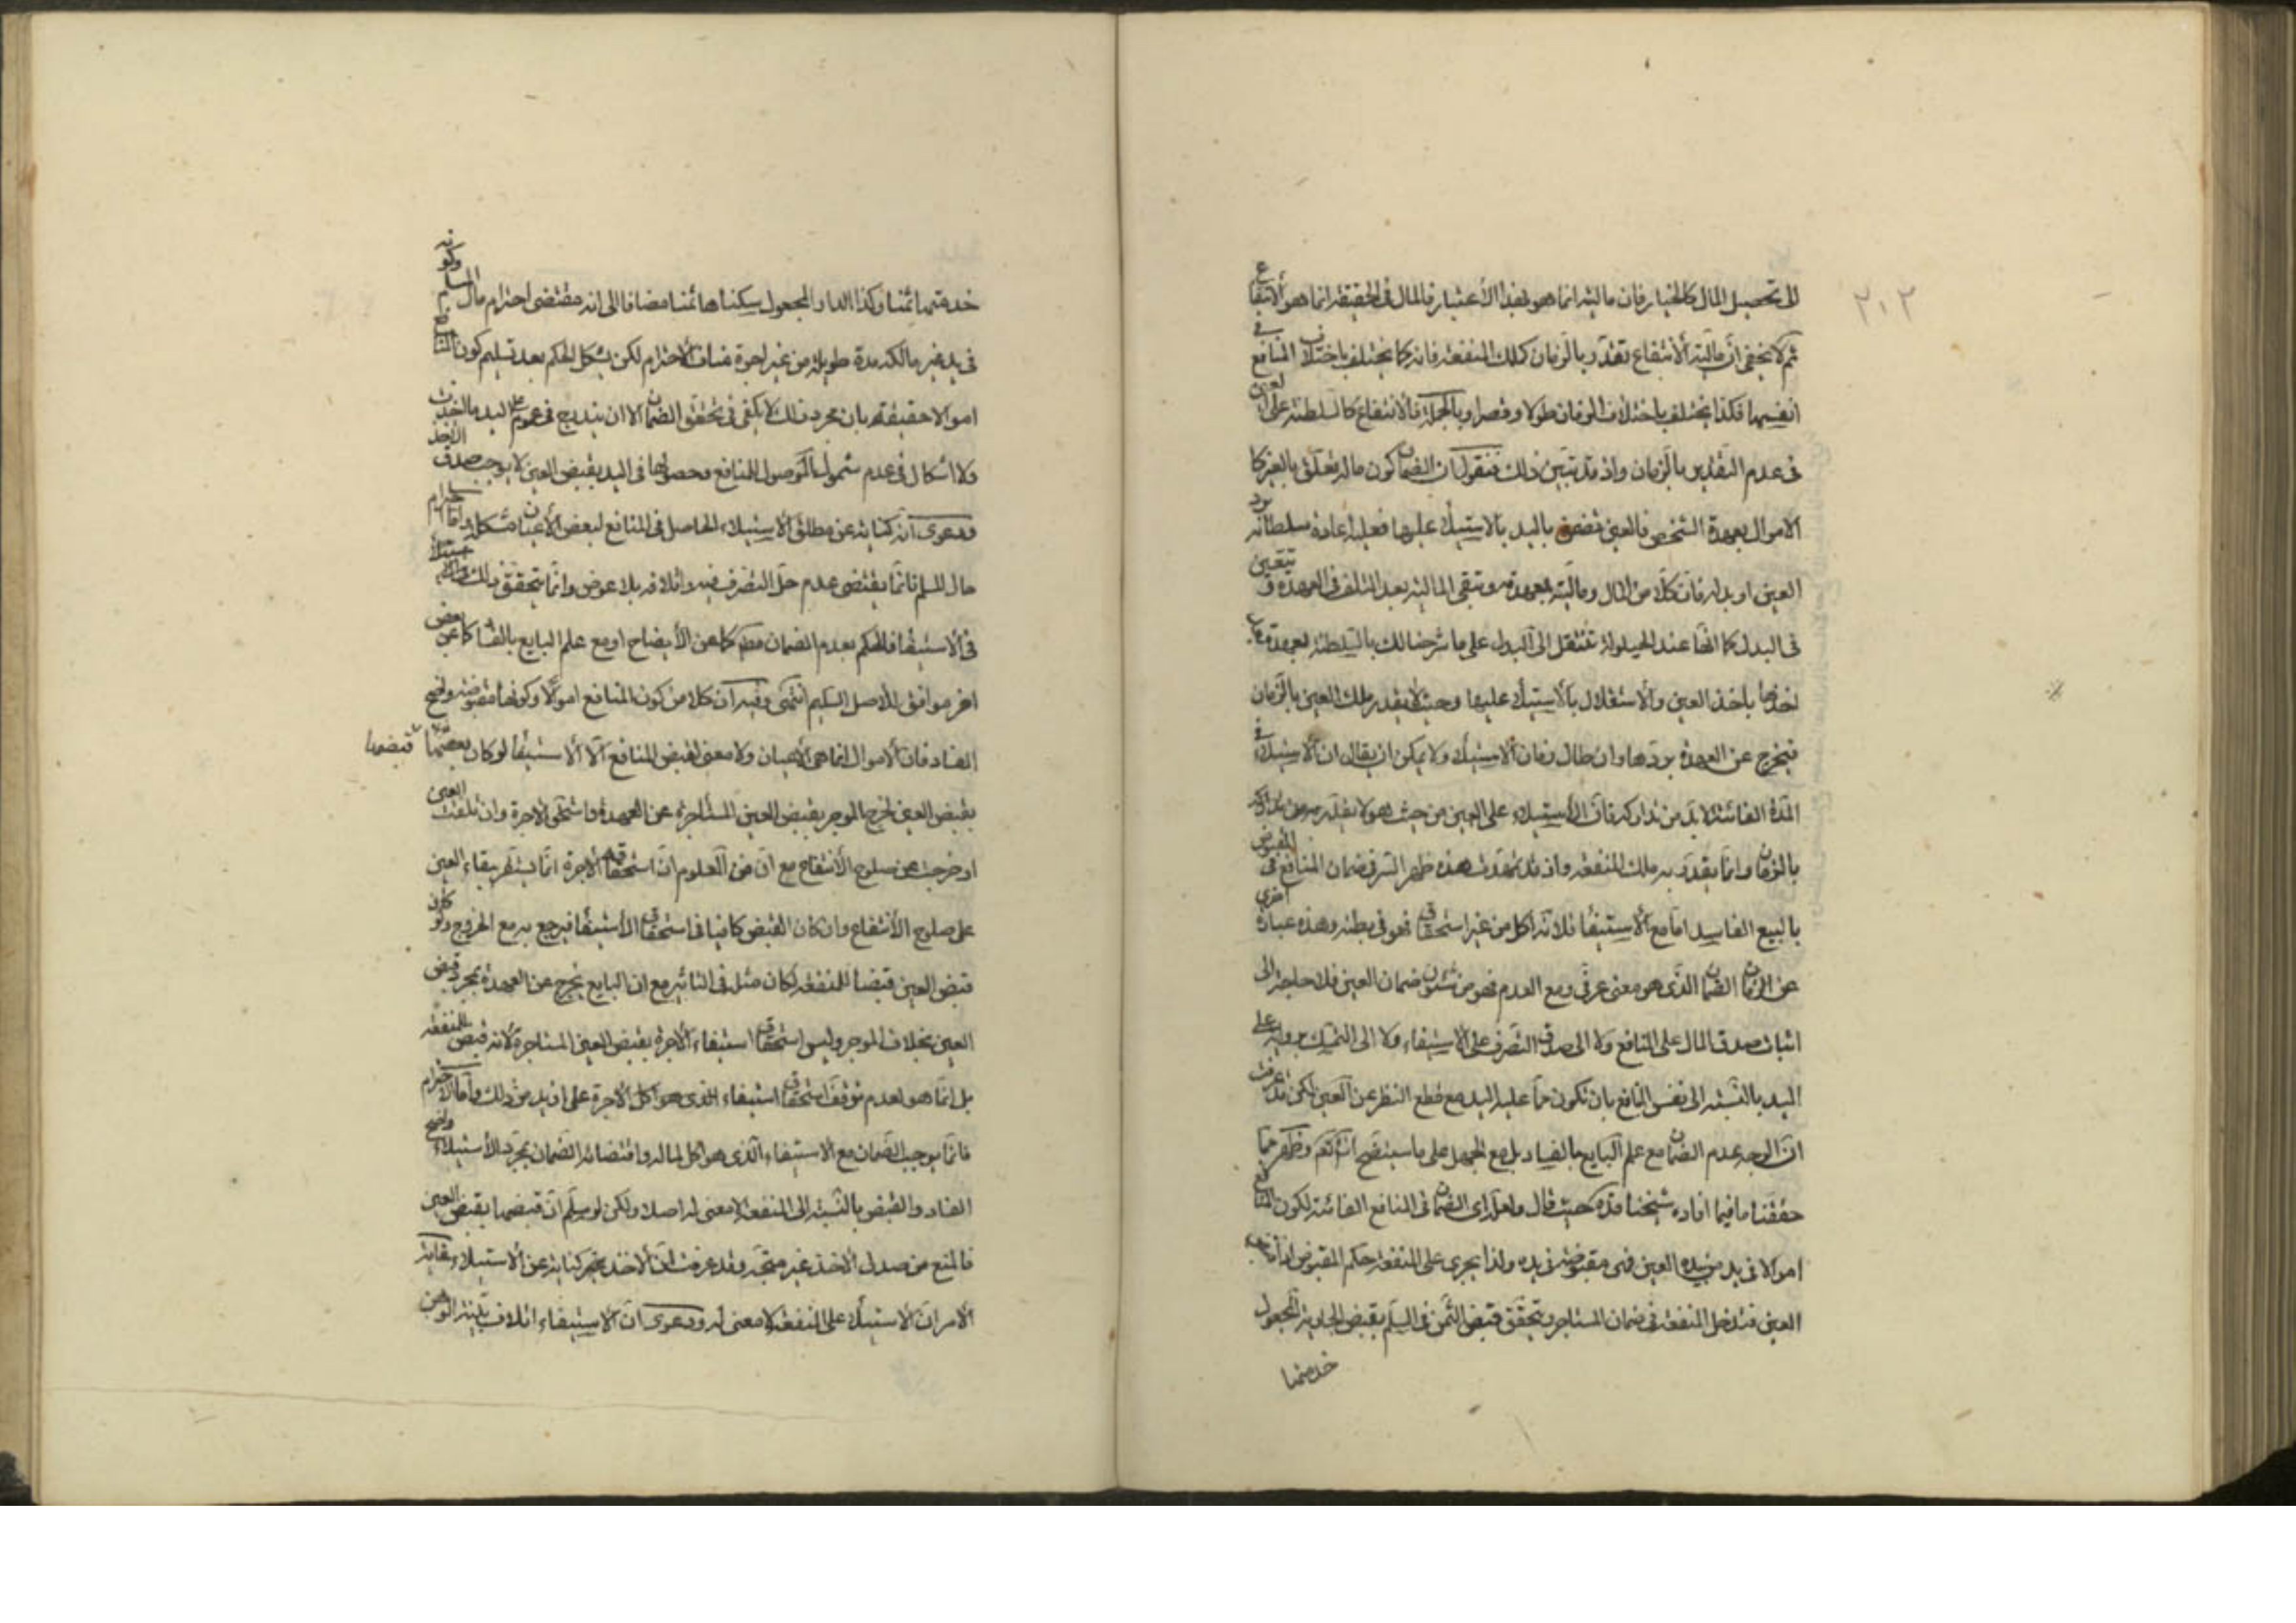 ٢٠٢
الى تحصيل المال كالخيار فان ماليته انما هو بهذا الاعتبار فالمال فى الحقيقة انما هو الانتفاع
ثم لا يخفى ان مالية الانتفاع تتقدر بالزمان كملك المنفعة فانه كما يختلف باختلاف المنافع فى
انفسها فكذا يختلف باختلاف الزمان طولا وقصرا وبالجملة فالانتفاع كالسلطنة على العين
فى عدم التقدير بالزمان واذ قد تبين ذلك فنقول ان الضمان كون ماله تعلق بالغير كا
الاموال بعهدة الشخص فالعين تضمن باليد بالاستيلاء عليها فعليه اعادة سلطانه برد
العين او بدله فان كلا من المال وماليته بعهدته وتبقى المالية بعد التلف فى العهدة وتتعين
فى البدل كما انها عند الحيلولة تنتقل الى البدل على ما شرحنا لك بالسلطنة بعهدة
اخذها باخذ العين والاستقلال بالاستيلاء عليها وحيث لا يقدر ملك العين بالزمان
فيخرج عن العهدة بردها وان طال زمان الاستيلاء ولا يمكن ان يقال ان الاستيلاء فى
المدة الفائتة لا بد من تداركه فان الاستيلاء على العين من حيث هو لا يقدر
بالزمان وانما يقدر به ملك المنفعة واذ قد تمهدت هذه ظهر السر فى ضمان المنافع فى المقبوض
بالبيع الفاسد اما مع الاستيفاء فلانه اكل من غير استحقاق فهو فى بطنه وهذه عبارة اخرى
عن الضمان الذى هو معنى عرفى ومع العدم فهو من شئون ضمان العين فلا حاجة الى
اثبات صدق المال على المنافع ولا الى صدق التصرف على الاستيفاء ولا الى التمسك على
اليد بالنسبة الى نفس المنافع بان تكون مما عليه اليد مع قطع النظر عن العين لكن قد عرفت
ان الوجه عدم الضمان مع علم البايع بالفساد بل مع الجهل على ما سيتضح انشاء الله وظهر مما
حققنا ما فيما افاده شيخنا قده حيث قال ولعل راى الضمان فى المنافع الفائتة لكون المنافع
اموالا فى يد من بيده العين فهى مقبوضة فى يده ولذا يجرى على المنفعة حكم المقبوض اذا قبض
العين فتدخل المنفعة فى ضمان المستاجر ويتحقق قبض الثمن فى السلم بقبض الجارية المجعول
خدمتها
خدمتها ثمنا وكذا الدار المجعول سكناها ثمنا مضافا الى انه مقتضى احترام مال المسلم وكونه
فى يد غير مالكه مدة طويلة من غير اجرة مناف الاحترام لكن يشكل الحكم بعد تسليم كون المنافع
اموالا حقيقة بان مجرد ذلك لا يكفى فى تحقق الضمان الا ان يندرج فى عموم على اليد ما اخذت
ولا اشكال فى عدم شمول الموصول للمنافع وحصولها فى اليد بقبض العين لا يوجب صدق الاخذ
ودعوى انه كناية عن مطلق الاستيلاء الحاصل فى المنافع لبعض الاعيان مشكلة واما احترام
مال المسلم فانما يقتضى عدم حل التصرف فيه واتلافه بلا عوض وانما يتحقق ذلك
فى الاستيفاء فالحكم بعدم الضمان مطلقا كما عن الايضاح او مع علم البايع بالفساد كما عن بعض
اخر موافق للاصل السليم انتهى وفيه ان كلا من كون المنافع اموالا وكونها مقبوضة واضح
الفساد فان الاموال انما هى الاعيان ولا معنى لقبض المنافع الا الاستيفاء لو كان قبضها
بقبض العين لخرج الموجر بقبض العين المستاجرة عن العهدة واستحق الاجرة وان تلفت العين
او خرجت عن صلوح الانتفاع مع ان من المعلوم ان استحقاقه الاجرة انما يستقر ببقاء العين
على صلوح الانتفاع وان كان القبض كافيا فى استحقاق الاستيفاء فيرجع به مع الخروج ولو كان
قبض العين قبضا للمنفعة لكان مثله فى التاثير مع ان البايع يخرج عن العهدة بمجرد قبض
العين بخلاف الموجر وليس استحقاق استيفاء الاجرة بقبض العين المستاجرة لانه قبض للمنفعة
بل انما هو لعدم توقف استحقاق استيفاء الذى هو اكل الاجرة على ازيد من ذلك واما الاحترام
فانما يوجب الضمان مع الاستيفاء الذى هو اكل لماله واقتضائه الضمان بمجرد الاستيلاء واضح
الفساد والقبض بالنسبة الى المنفعة لا معنى له اصلا ولكن لو سلم ان قبضها بقبض العين
فالمنع من صدق الاخذ غير متجه وقد عرفت ان الاخذ غير كناية عن الاستيلاء وغاية
الامر ان الاستيلاء على المنفعة لا معنى له ودعوى ان الاستيفاء اتلاف